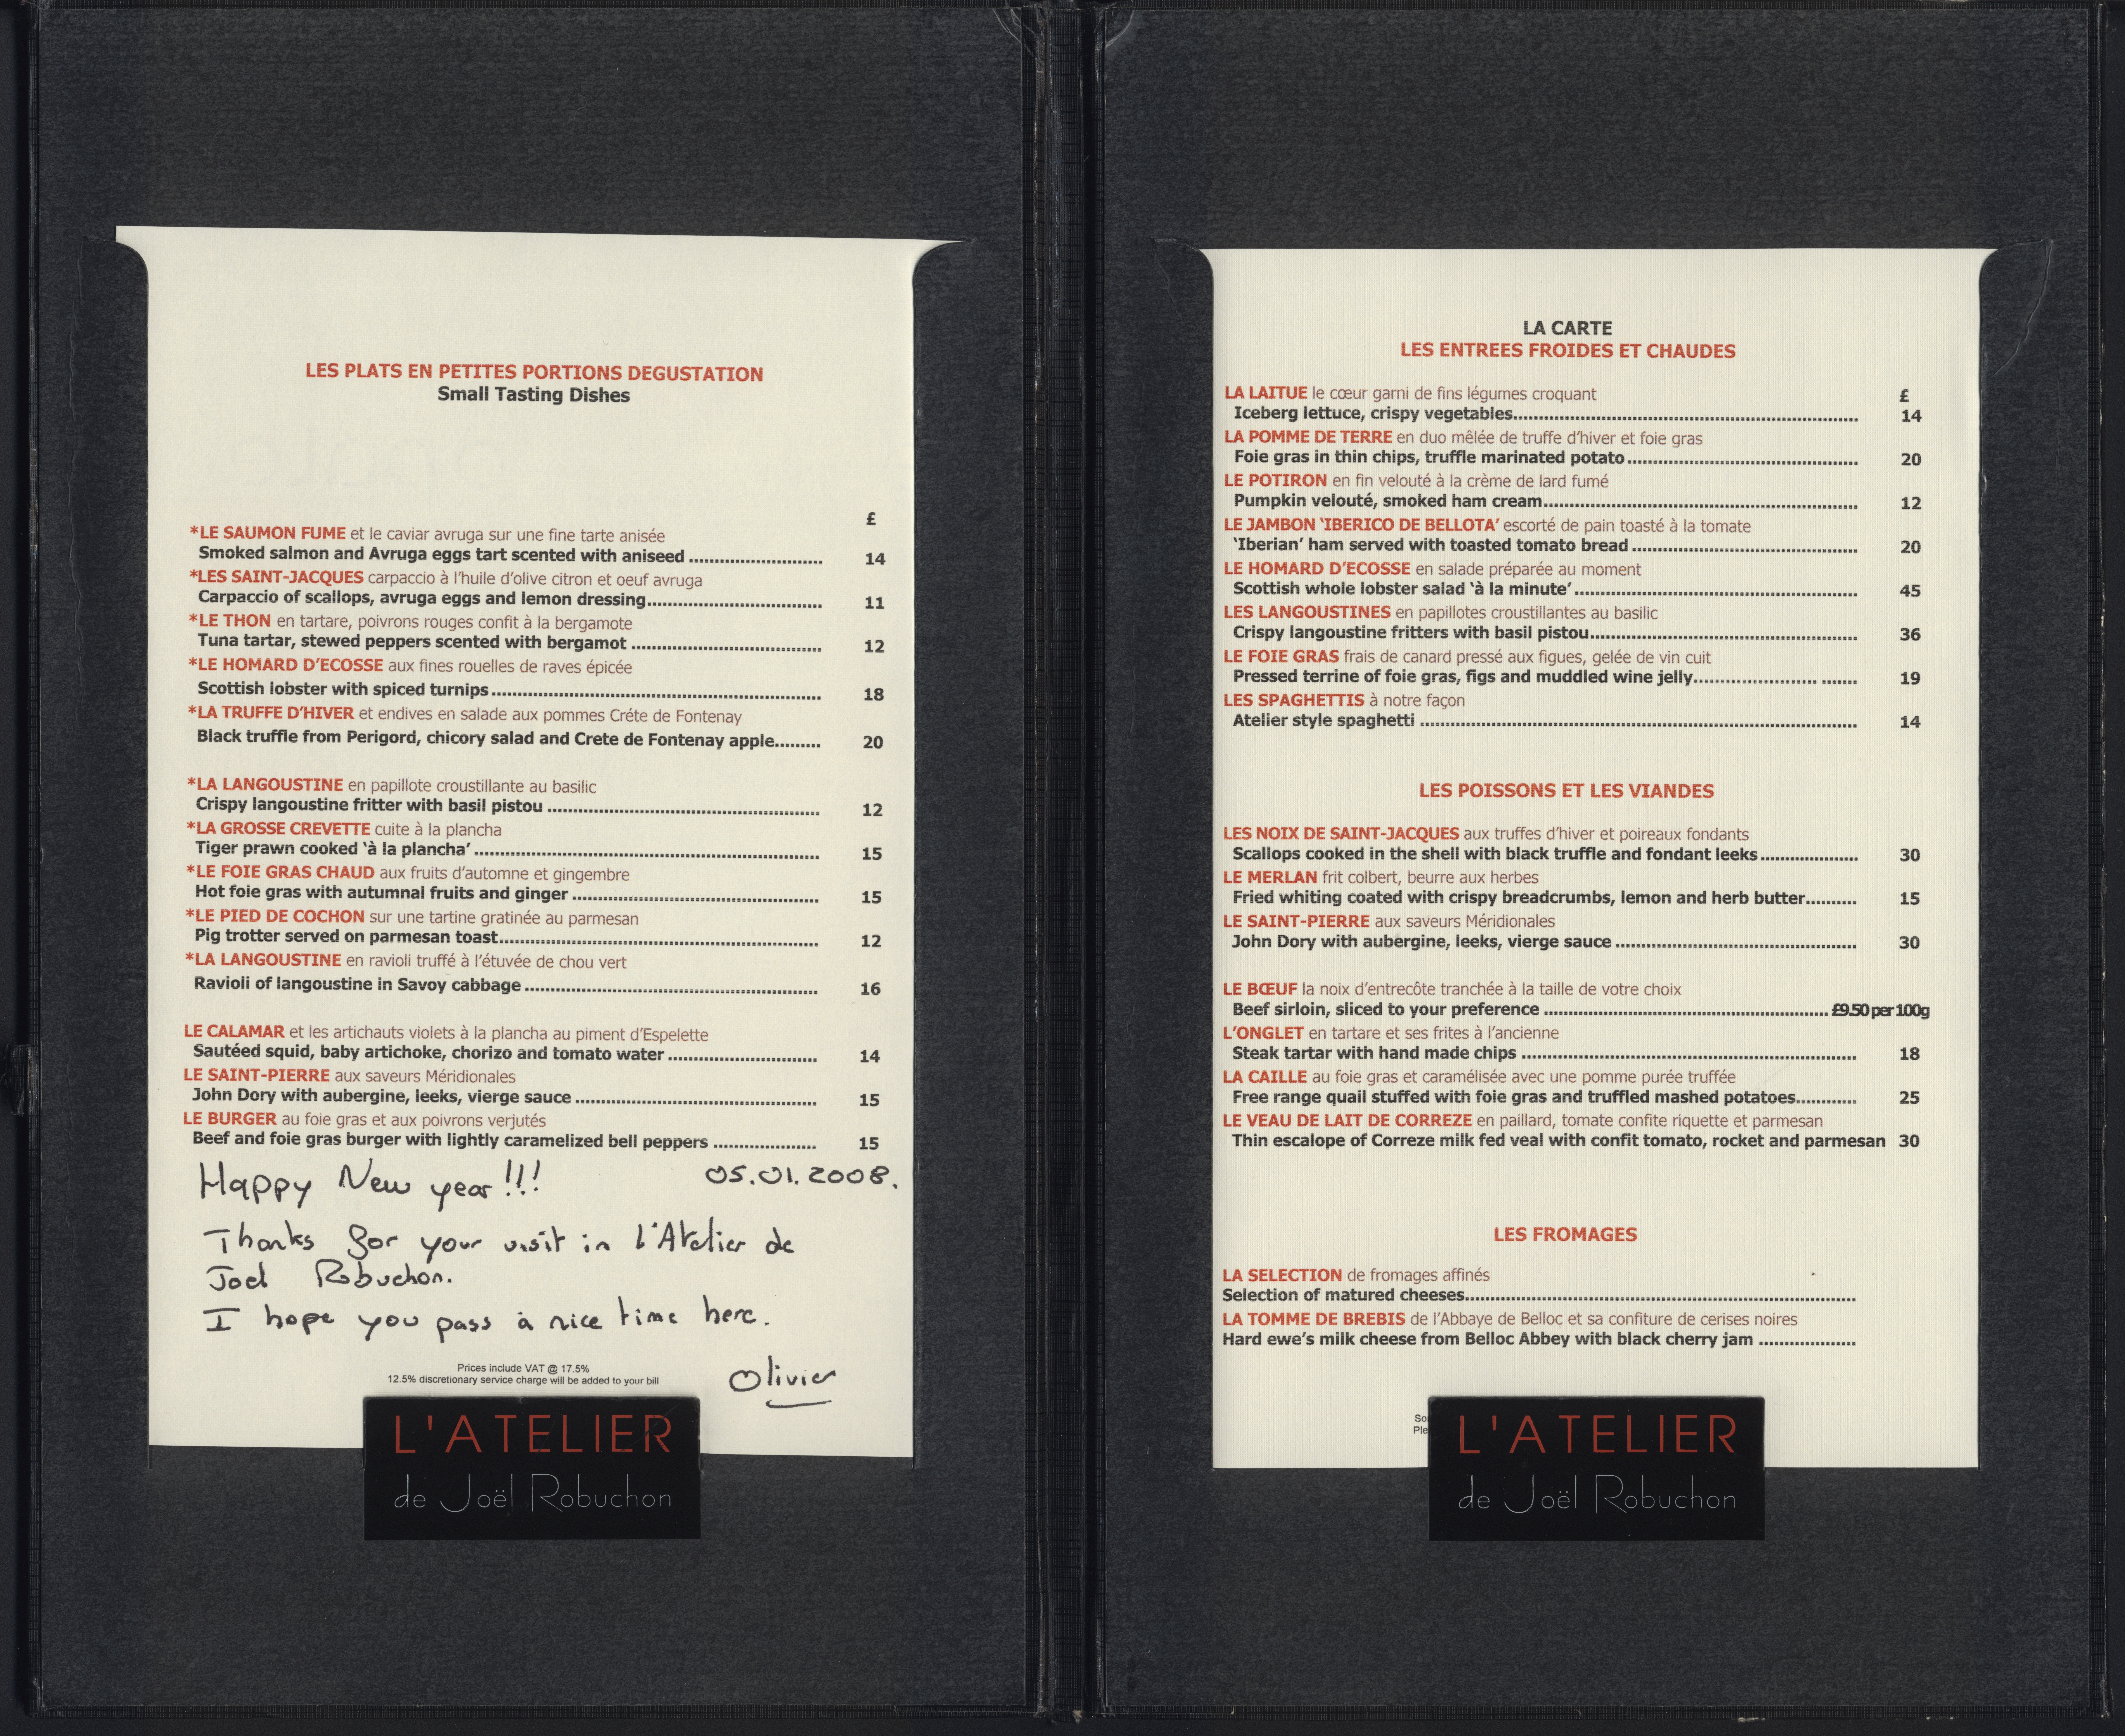 LES PLATS EN PETITES PORTIONS DEGUSTATION
Small Tasting Dishes
£
*LE SAUMON FUME et le caviar avruga sur une fine tarte anisée
Smoked salmon and Avruga eggs tart scented with aniseed ........................... 14
*LES SAINT-JACQUES carpaccio à l'huile d'olive citron et oeuf avruga
Carpaccio of scallops, avruga eggs and lemon dressing................................... 11
*LE THON en tartare, poivrons rouges confit à la bergamote
Tuna tartar, stewed peppers scented with bergamot ...................................... 12
*LE HOMARD D'ECOSSE aux fines rouelles de raves épicée
Scottish lobster with spiced turnips.................................................................. 18
*LA TRUFFE D'HIVER et endives en salade aux pommes Créte de Fontenay
Black truffle from Perigord, chicory salad and Crete de Fontenay apple......... 20
*LA LANGOUSTINE en papillote croustillante au basilic
Crispy langoustine fritter with basil pistou ....................................................... 12
*LA GROSSE CREVETTE cuite à la plancha
Tiger prawn cooked ‘à la plancha’..................................................................... 15
*LE FOIE GRAS CHAUD aux fruits d'automne et gingembre
Hot foie gras with autumnal fruits and ginger .................................................. 15
*LE PIED DE COCHON sur une tartine gratinée au parmesan
Pig trotter served on parmesan toast................................................................ 12
*LA LANGOUSTINE en ravioli truffé à l'étuvée de chou vert
Ravioli of langoustine in Savoy cabbage........................................................... 16
LE CALAMAR et les artichauts violets à la plancha au piment d'Espelette
Sautéed squid, baby artichoke, chorizo and tomato water .............................. 14
LE SAINT-PIERRE aux saveurs Méridionales
John Dory with aubergine, leeks, vierge sauce ................................................. 15
LE BURGER au foie gras et aux poivrons verjutés
Beef and foie gras burger with lightly caramelized bell peppers ..................... 15
Happy New year!!! 05.01.2008.
Thanks for your visit in l'Atelier de
Joel Robuchon.
I hope you pass a nice time here.
Prices include VAT @ 17.5%
12.5% discretionary service charge will be added to your bill
Olivier
L'ATELIER
de Joël Robuchon
LA CARTE
LES ENTREES FROIDES ET CHAUDES
LA LAITUE le cœur garni de fins légumes croquant £
Iceberg lettuce, crispy vegetables..................................................................... 14
LA POMME DE TERRE en duo mêlée de truffe d'hiver et foie gras
Foie gras in thin chips, truffle marinated potato.............................................. 20
LE POTIRON en fin velouté à la crème de lard fumé
Pumpkin velouté, smoked ham cream............................................................... 12
LE JAMBON ‘IBERICO DE BELLOTA’ escorté de pain toasté à la tomate
‘Iberian’ ham served with toasted tomato bread............................................. 20
LE HOMARD D'ECOSSE en salade préparée au moment
Scottish whole lobster salad ‘à la minute’......................................................... 45
LES LANGOUSTINES en papillotes croustillantes au basilic
Crispy langoustine fritters with basil pistou..................................................... 36
LE FOIE GRAS frais de canard pressé aux figues, gelée de vin cuit
Pressed terrine of foie gras, figs and muddled wine jelly......................... ....... 19
LES SPAGHETTIS à notre façon
Atelier style spaghetti ....................................................................................... 14
LES POISSONS ET LES VIANDES
LES NOIX DE SAINT-JACQUES aux truffes d'hiver et poireaux fondants
Scallops cooked in the shell with black truffle and fondant leeks................... 30
LE MERLAN frit colbert, beurre aux herbes
Fried whiting coated with crispy breadcrumbs, lemon and herb butter.......... 15
LE SAINT-PIERRE aux saveurs Méridionales
John Dory with aubergine, leeks, vierge sauce ................................................ 30
LE BŒUF la noix d'entrecôte tranchée à la taille de votre choix
Beef sirloin, sliced to your preference .........................................................£9.50 per 100g
L'ONGLET en tartare et ses frites à l'ancienne
Steak tartar with hand made chips ................................................................... 18
LA CAILLE au foie gras et caramélisée avec une pomme purée truffée
Free range quail stuffed with foie gras and truffled mashed potatoes............ 25
LE VEAU DE LAIT DE CORREZE en paillard, tomate confite riquette et parmesan
Thin escalope of Correze milk fed veal with confit tomato, rocket and parmesan 30
LES FROMAGES
LA SELECTION de fromages affinés
Selection of matured cheeses..............................................................................
LA TOMME DE BREBIS de l'Abbaye de Belloc et sa confiture de cerises noires
Hard ewe's milk cheese from Belloc Abbey with black cherry jam ...................
L'ATELIER
de Joël Robuchon